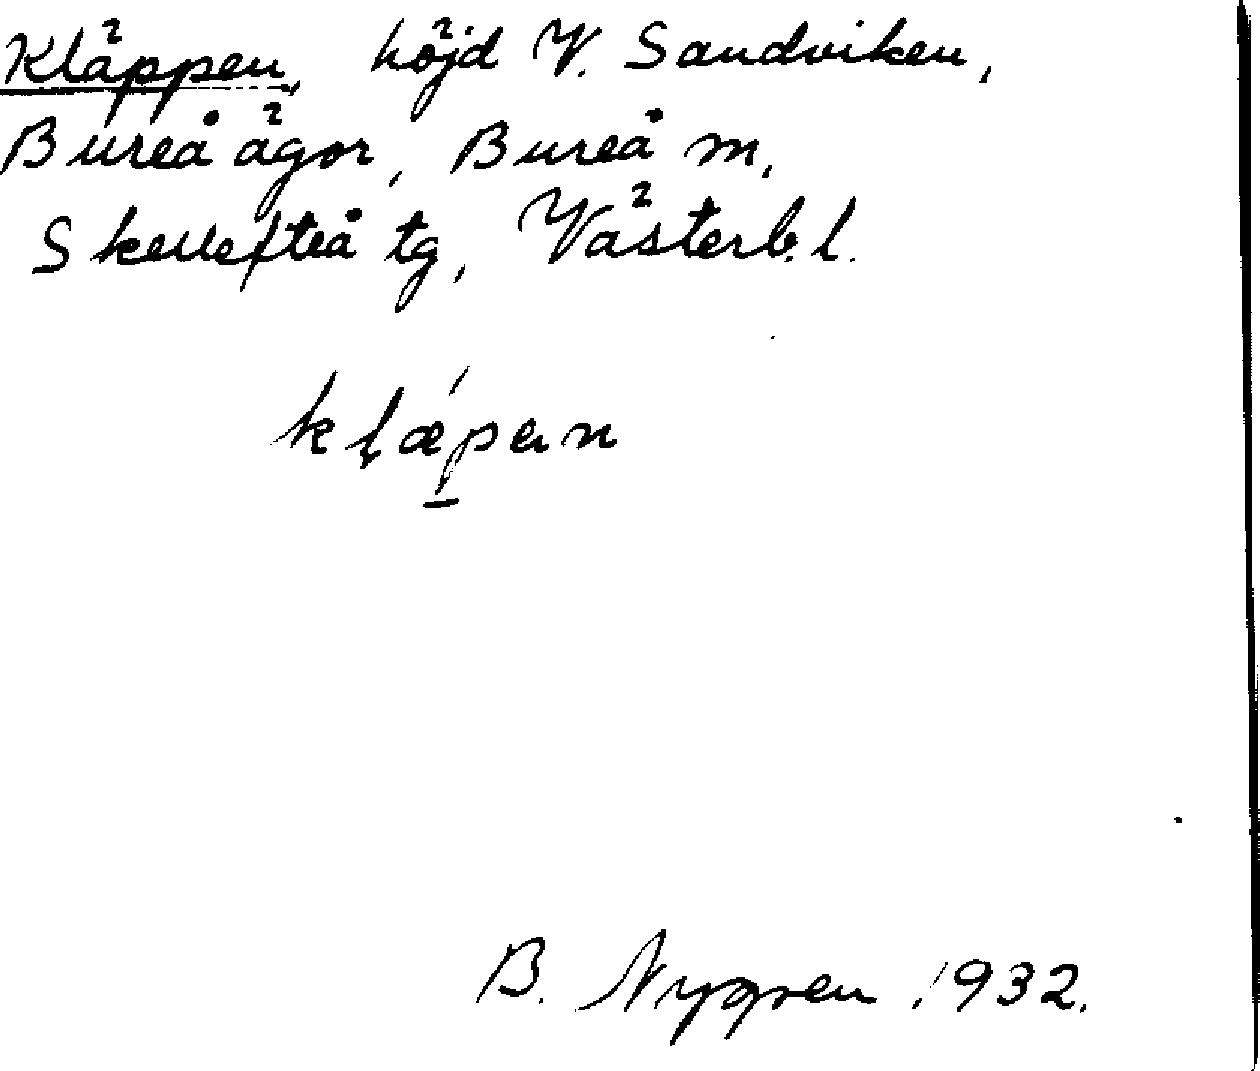 Kläppen, höjd V. Sandviken,
Bureå ägor, Bureå m,
Skellefteå tg, Västerb. l.
klæ´pen
B. Nygren 1932.